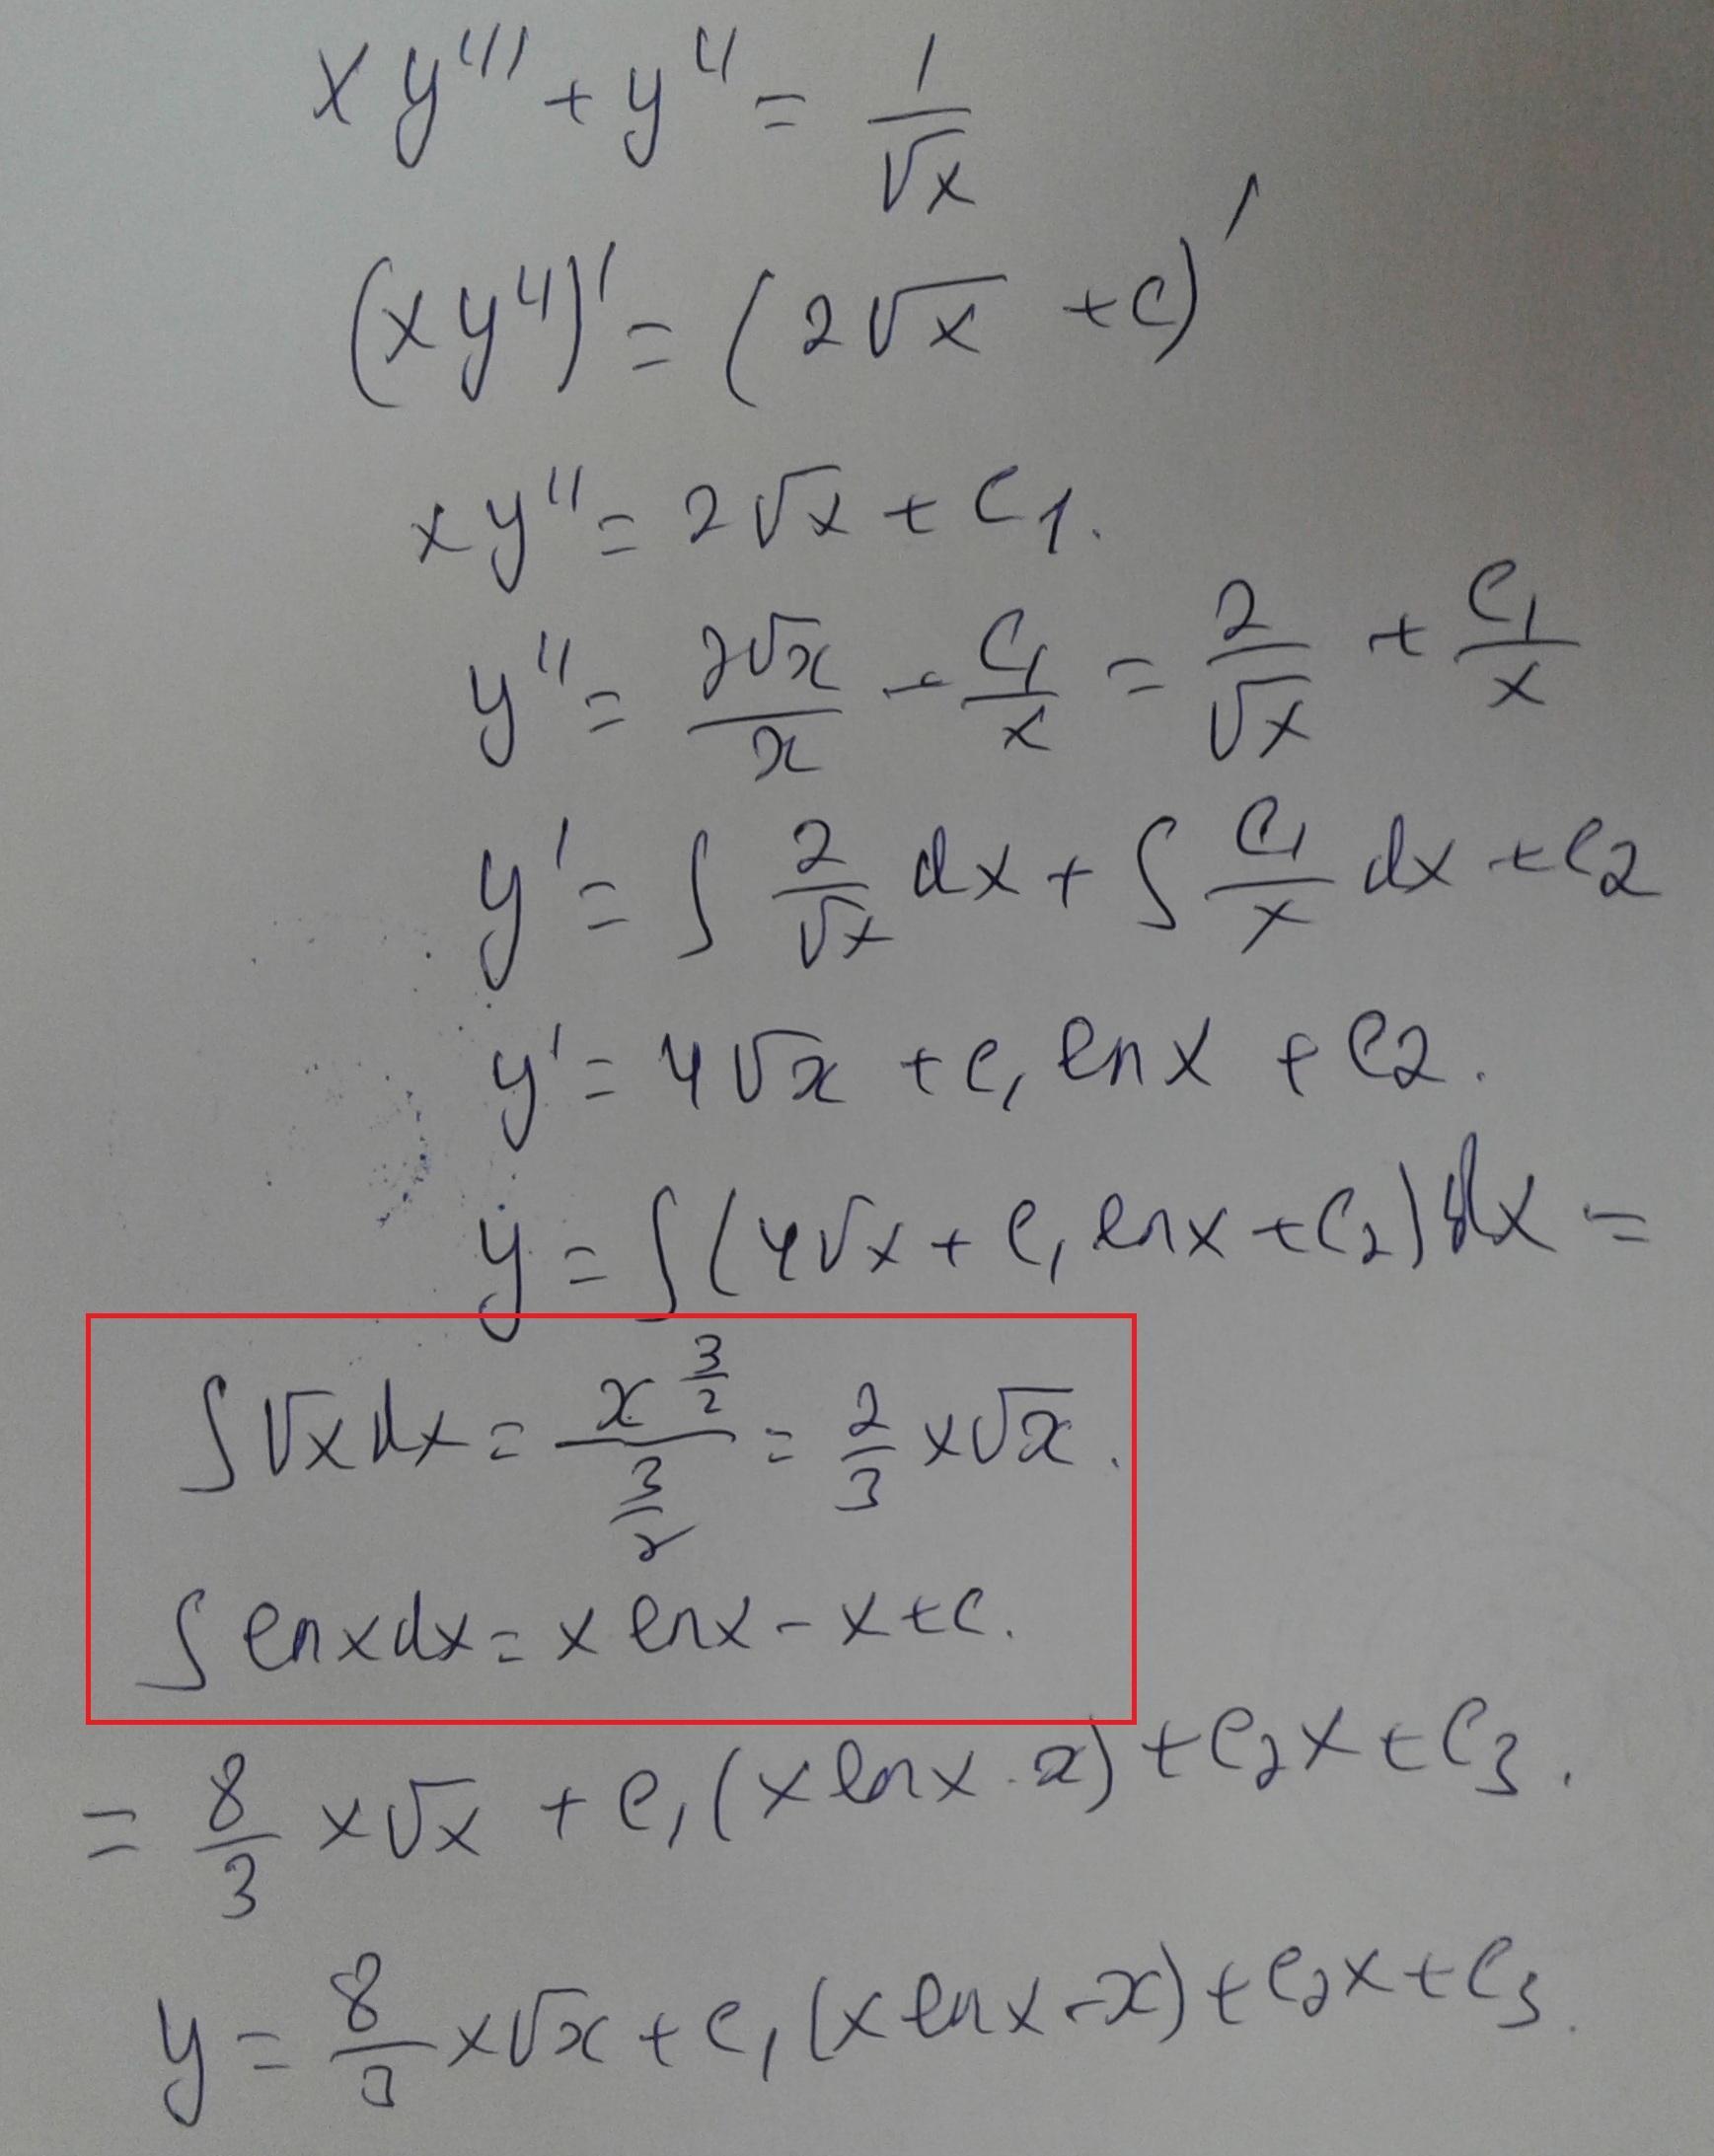 xy''' + y'' = 1/√x
(xy'')' = (2√x + C)'
xy'' = 2√x + C1.
y'' = 2√x/x + C1/x = 2/√x + C1/x
y' = ∫ 2/√x dx + ∫ C1/x dx + C2
y' = 4√x + C1 ln x + C2.
y = ∫(4√x + C1 ln x + C2)dx =
∫√x dx = x^(3/2)/(3/2) = 2/3 x√x.
∫ ln x dx = x ln x - x + C.
= 8/3 x√x + C1(x ln x - x) + C2x + C3.
y = 8/3 x√x + C1(x ln x - x) + C2x + C3.